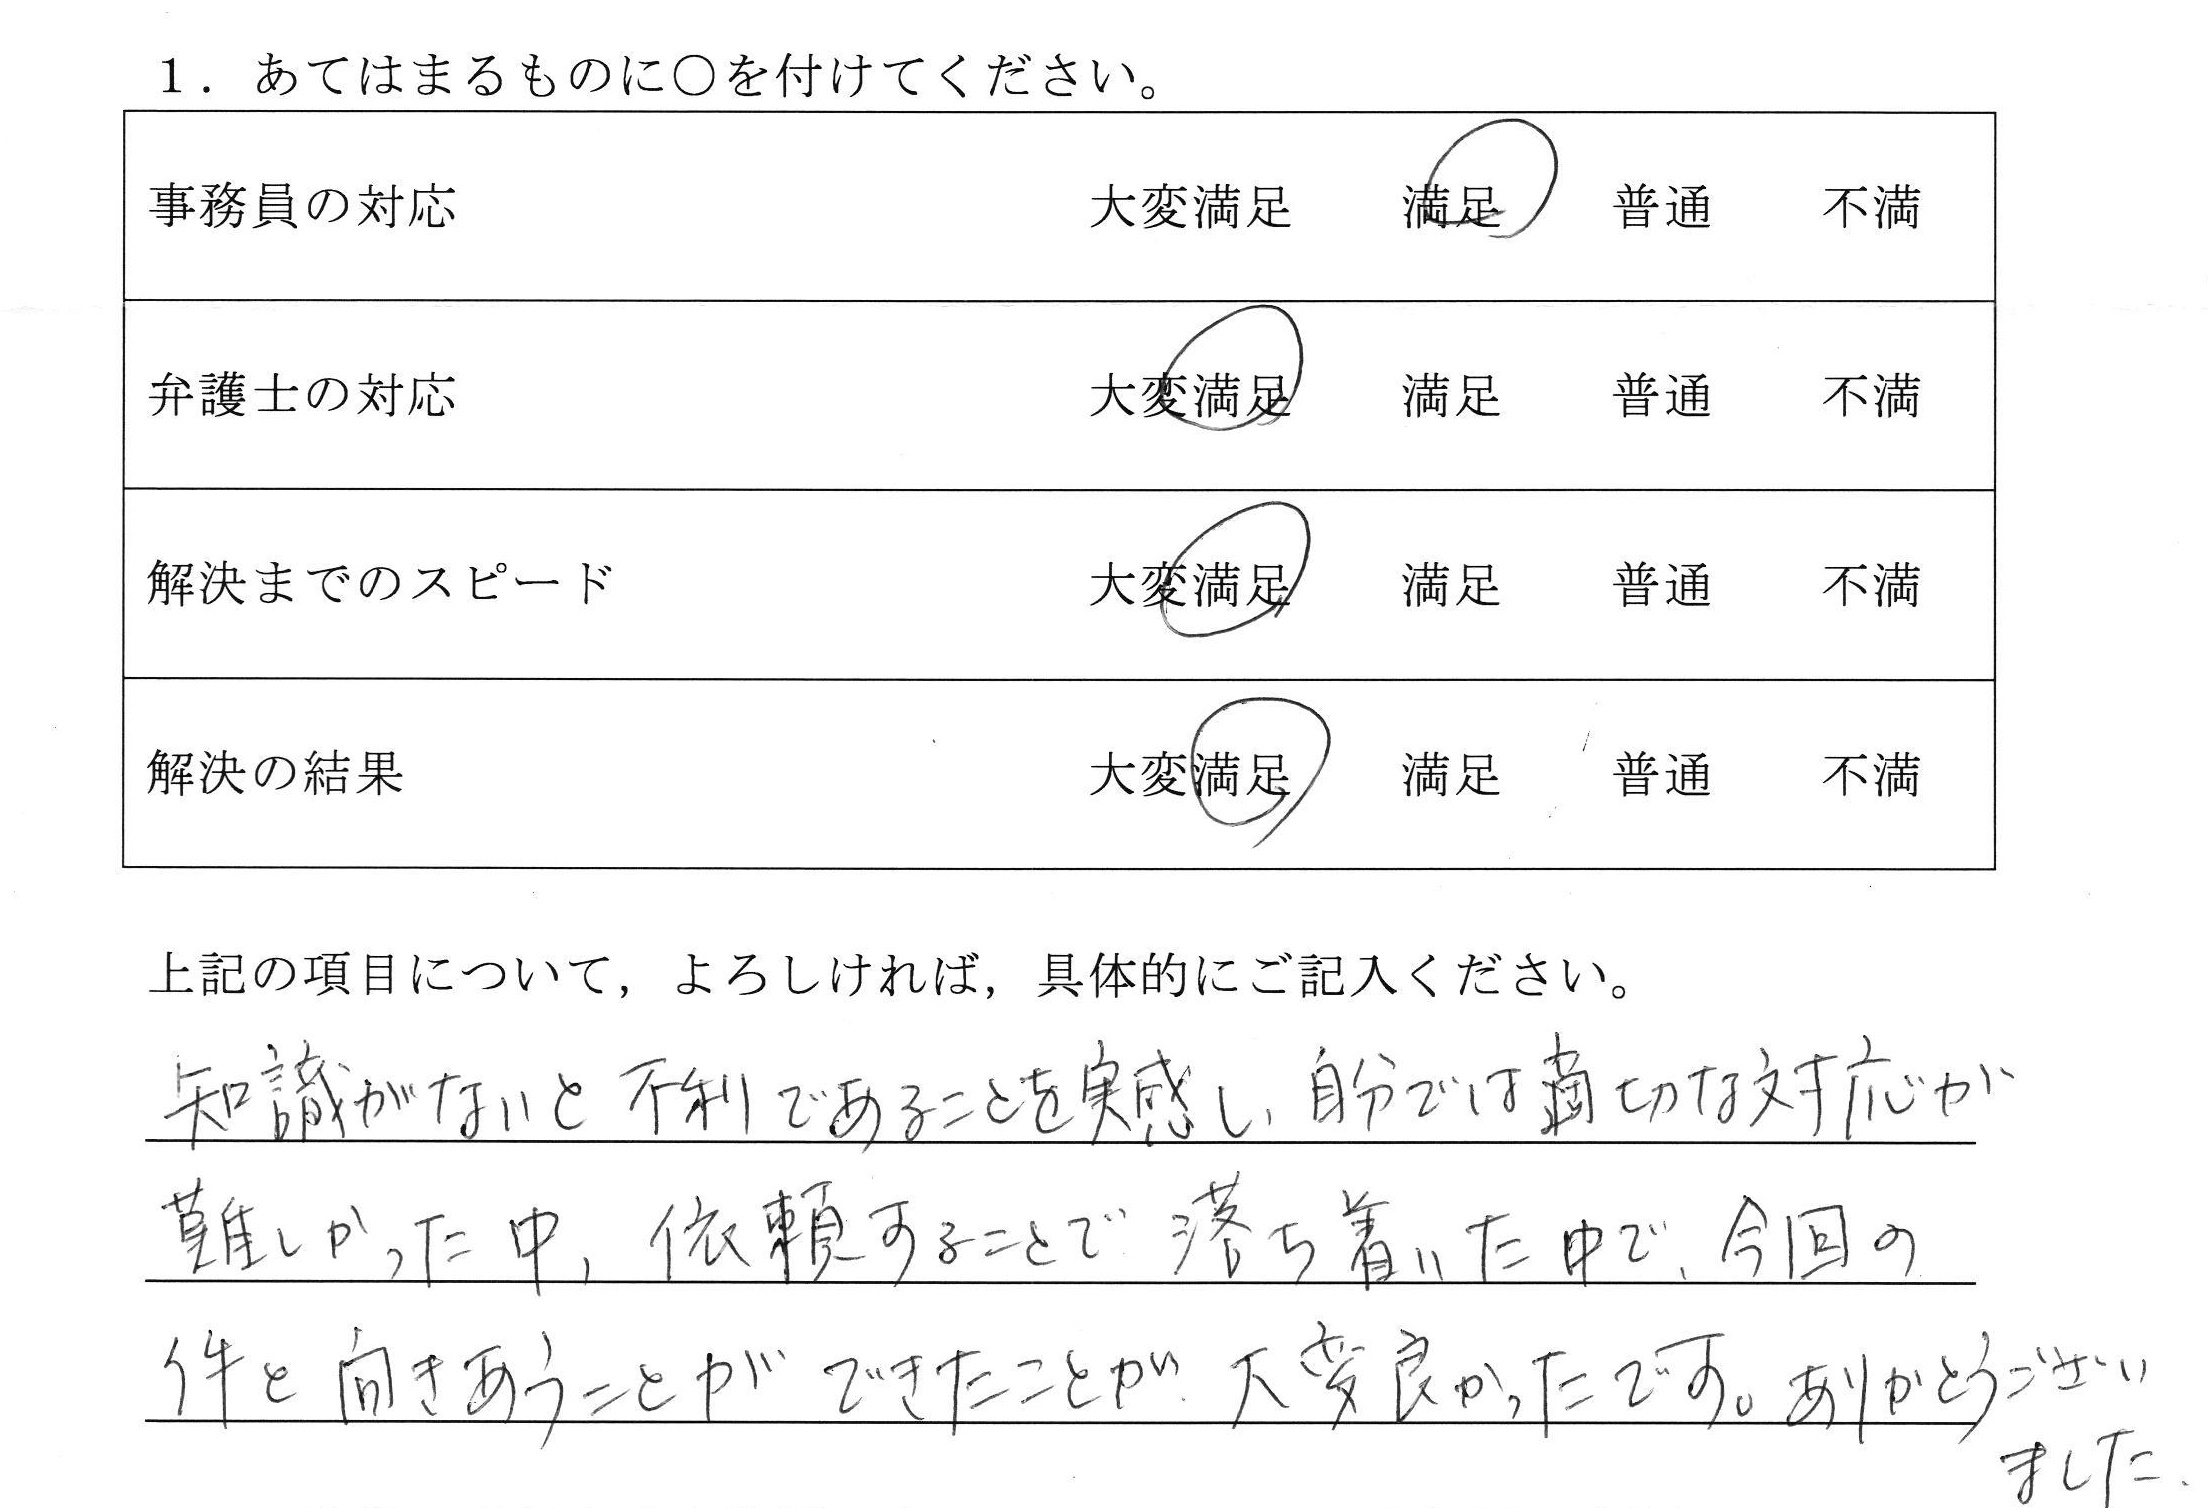 1．あてはまるものに○を付けてください。
事務員の対応　大変満足　満足　普通　不満
弁護士の対応　大変満足　満足　普通　不満
解決までのスピード　大変満足　満足　普通　不満
解決の結果　大変満足　満足　普通　不満
上記の項目について，よろしければ，具体的にご記入ください。
知識がないと不利であることを実感し、自分では適切な対応が
難しかった中、依頼することで落ち着いた中で、今回の
件と向きあうことができたことが、大変良かったです。ありがとうござい
ました。